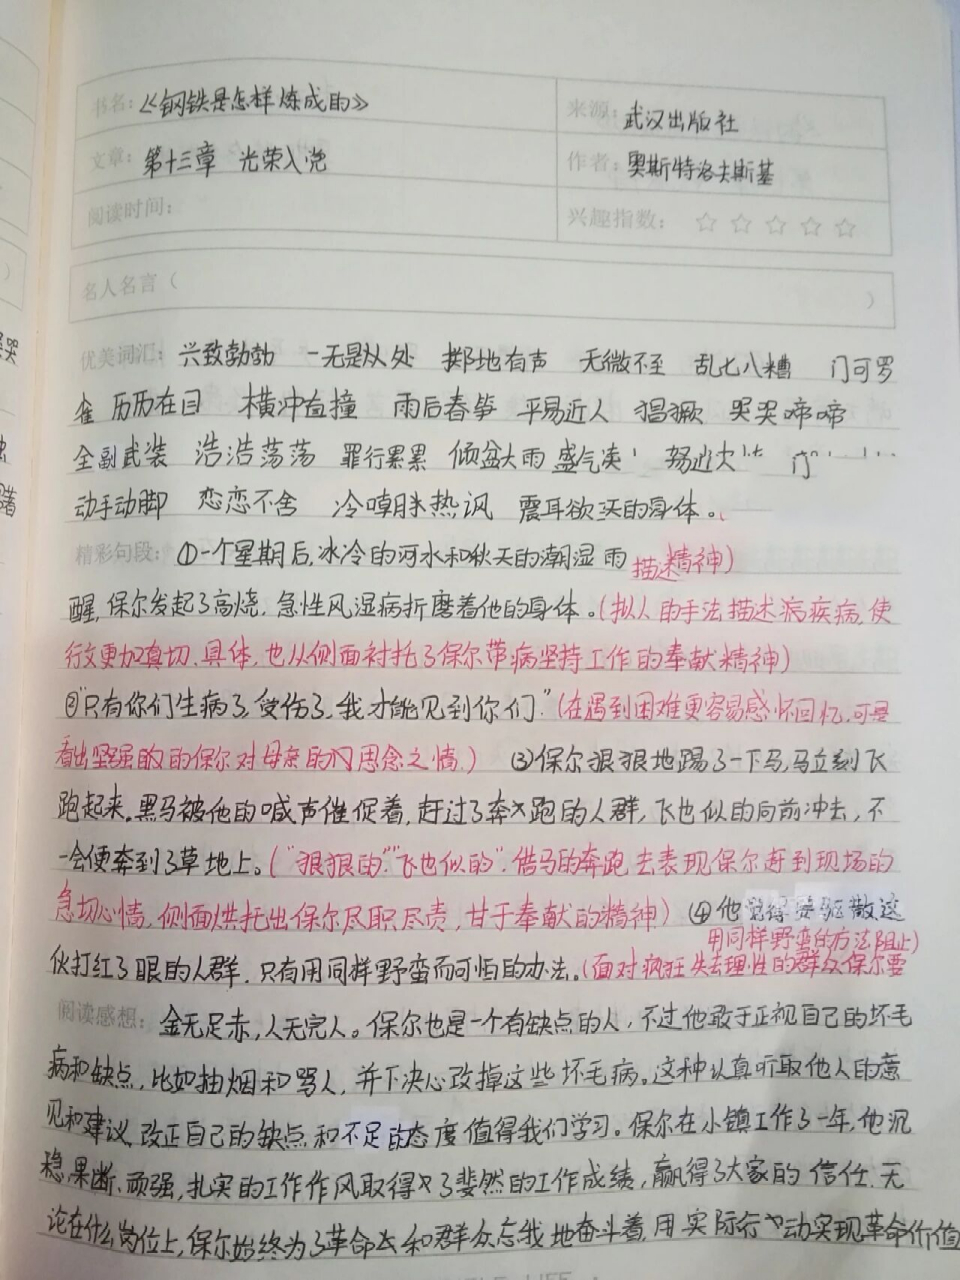 书名：《钢铁是怎样炼成的》 来源：武汉出版社
文章：第十三章 光荣入党 作者：奥斯特洛夫斯基
阅读时间： 兴趣指数：☆☆☆☆☆
名人名言（ ）
优美词汇：兴致勃勃 一无是处 掷地有声 无微不至 乱七八糟 门可罗
雀 历历在目 横冲直撞 雨后春笋 平易近人 猖獗 哭哭啼啼
全副武装 浩浩荡荡 罪行累累 倾盆大雨 盛气凌
动手动脚 恋恋不舍 冷嘲热讽 震耳欲 的身体。（
精彩句段：①一个星期后，冰冷的河水和秋天的潮湿雨 描述精神）
醒，保尔发起了高烧，急性风湿病折磨着他的身体。（拟人的手法描述病疾病，使
行文更加真切、具体，也从侧面衬托了保尔带病坚持工作的奉献精神）
②"只有你们生病了，受伤了，我才能见到你们"（在遇到困难更容易感怀回忆，可是
看出坚强的保尔对母亲的思念之情） ③保尔狠狠地踢了一下马，马立刻飞
跑起来，黑马被他的喊声催促着，赶过了奔跑的人群，飞也似的向前冲去，不
一会便奔到了草地上。（"狠狠的""飞也似的"，借马的奔跑去表现保尔赶到现场的
急切心情，侧面烘托出保尔尽职尽责，甘于奉献的精神） ④他觉得要驱散这
用同样野蛮的方法阻止）
伙打红了眼的人群，只有用同样野蛮而可怕的办法。（面对疯狂失去理性的群众保尔要
阅读感想：金无足赤，人无完人。保尔也是一个有缺点的人，不过他敢于正视自己的坏毛
病和缺点，比如抽烟和骂人，并下决心改掉这些坏毛病。这种认真听取他人的意
见和建议，改正自己的缺点和不足的态度值得我们学习。保尔在小镇工作了一年，他沉
稳、果断、顽强，扎实的工作作风取得了斐然的工作成绩，赢得了大家的信任。无
论在什么岗位上，保尔始终为了革命和群众忘我地奋斗着，用实际行动实现革命价值